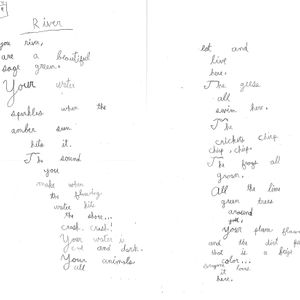 River
you river,
are a beautiful
sage green.
Your water
sparkles when the
amber sun
hits it.
The sound
you
make when
the flowing
water hits
the shore...
crash, crash!
Your water is
and dark.
Your animals
all
eat and
live
here.
The geese
all
swim here.
The
crickets chirp
chirp, chirp.
The frogs all
groan.
All the lime
green trees
around
you,
your plum
and the dirt
that is a
color...
love
here.